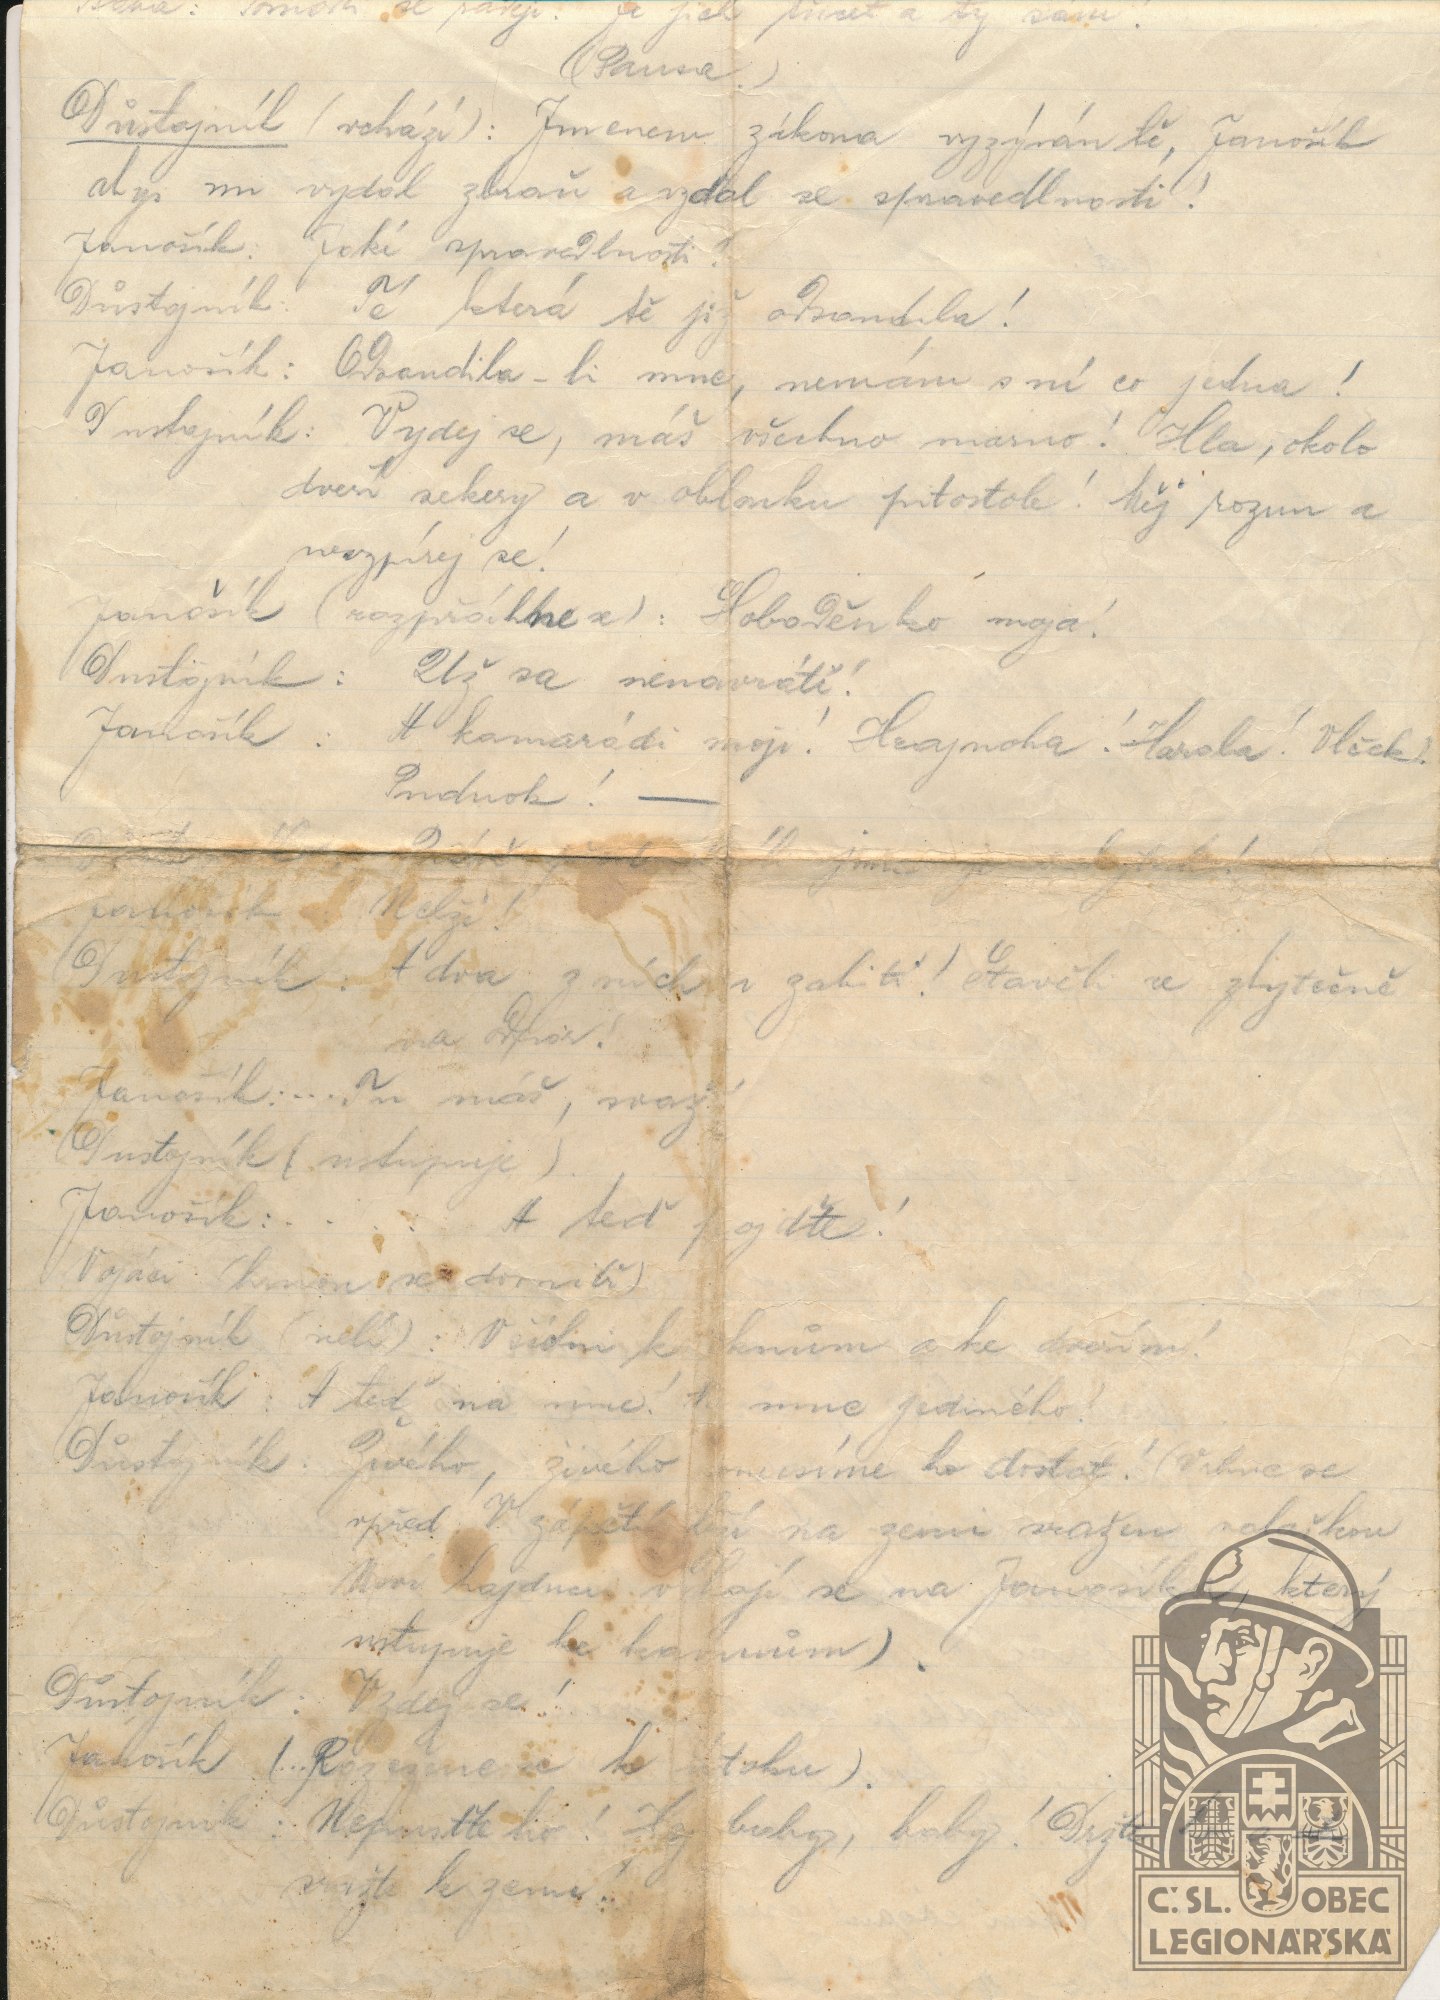 se raději! Je jich tucet a ty sám!
(Pausa.)
Důstojník (vchází): Jmenem zákona vyzývám tě, Janošík
abys mi vydal zbraň a vzdal se spravedlnosti!
Janošík: Jaké spravedlnosti?
Důstojník: Té která tě již odsoudila!
Janošík: Odsoudila-li mne, nemám s ní co jedna!
Dustojník: Vydej se, máš všechno marno! Hla, okolo
dveří sekery a v oblouku pitostole! Měj rozum a
nevzpírej se!
Janošík (rozpřáhne se): Sloboděnko moja!
Dustojník: Už sa nenavrátí!
Janošík: A kamarádi moji! Hrajnoha! Harala! Vlček!
Puduok! —
jsme je
Janošík Nelži!
Dustojník: A dva z nich zabiti! Stavěli se zbytečně
na odpor!
Janošík:... Tu máš, vraž!
Dustojník (ustupuje)
Janošík: . . . . A teď pojďte!
Vojáci (hrnou se dovnitř)
Důstojník (velí): Všichni k oknům a ke dveřím!
Janošík: A teď na mne! Na mne jediného!
Důstojník: Živého, živého musíme ho dostat! (Vrhne se
vpřed. V zápětí leží na zemi sražen valaškou
Noví hajduci vrhají se na Janošíka, který
ustupuje ke kamnům).
Důstojník: Vzdej se!
Janošík (...Rozežene se k útoku).
Důstojník: Nepusťte ho! Hej baby, baby! Držte
sražte k zemi!
Č.SL. OBEC
LEGIONÁŘSKÁ